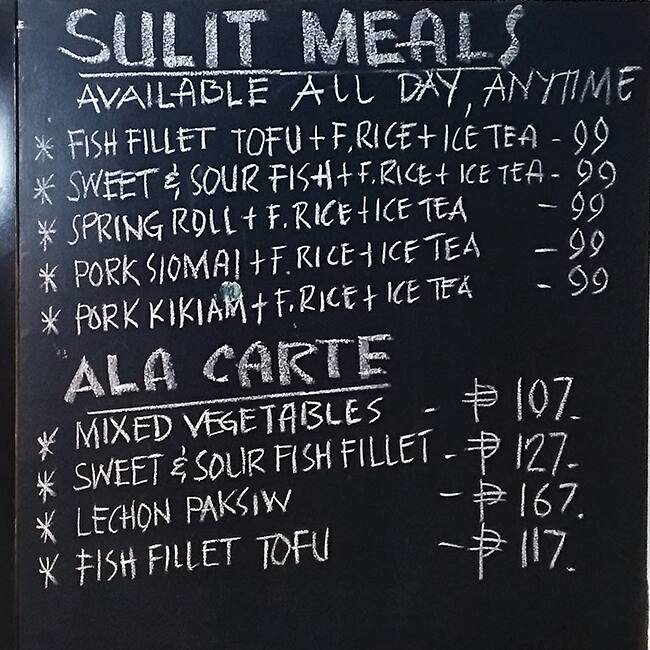 SULIT MEALS
AVAILABLE ALL DAY, ANYTIME
* FISH FILLET TOFU + F.RICE + ICE TEA - 99
* SWEET & SOUR FISH + F.RICE + ICE TEA - 99
* SPRING ROLL + F.RICE + ICE TEA - 99
* PORK SIOMAI + F.RICE + ICE TEA - 99
* PORK KIKIAM + F.RICE + ICE TEA - 99
ALA CARTE
* MIXED VEGETABLES - ₱ 107.
* SWEET & SOUR FISH FILLET - ₱ 127.
* LECHON PAKSIW - ₱ 167.
* FISH FILLET TOFU - ₱ 117.